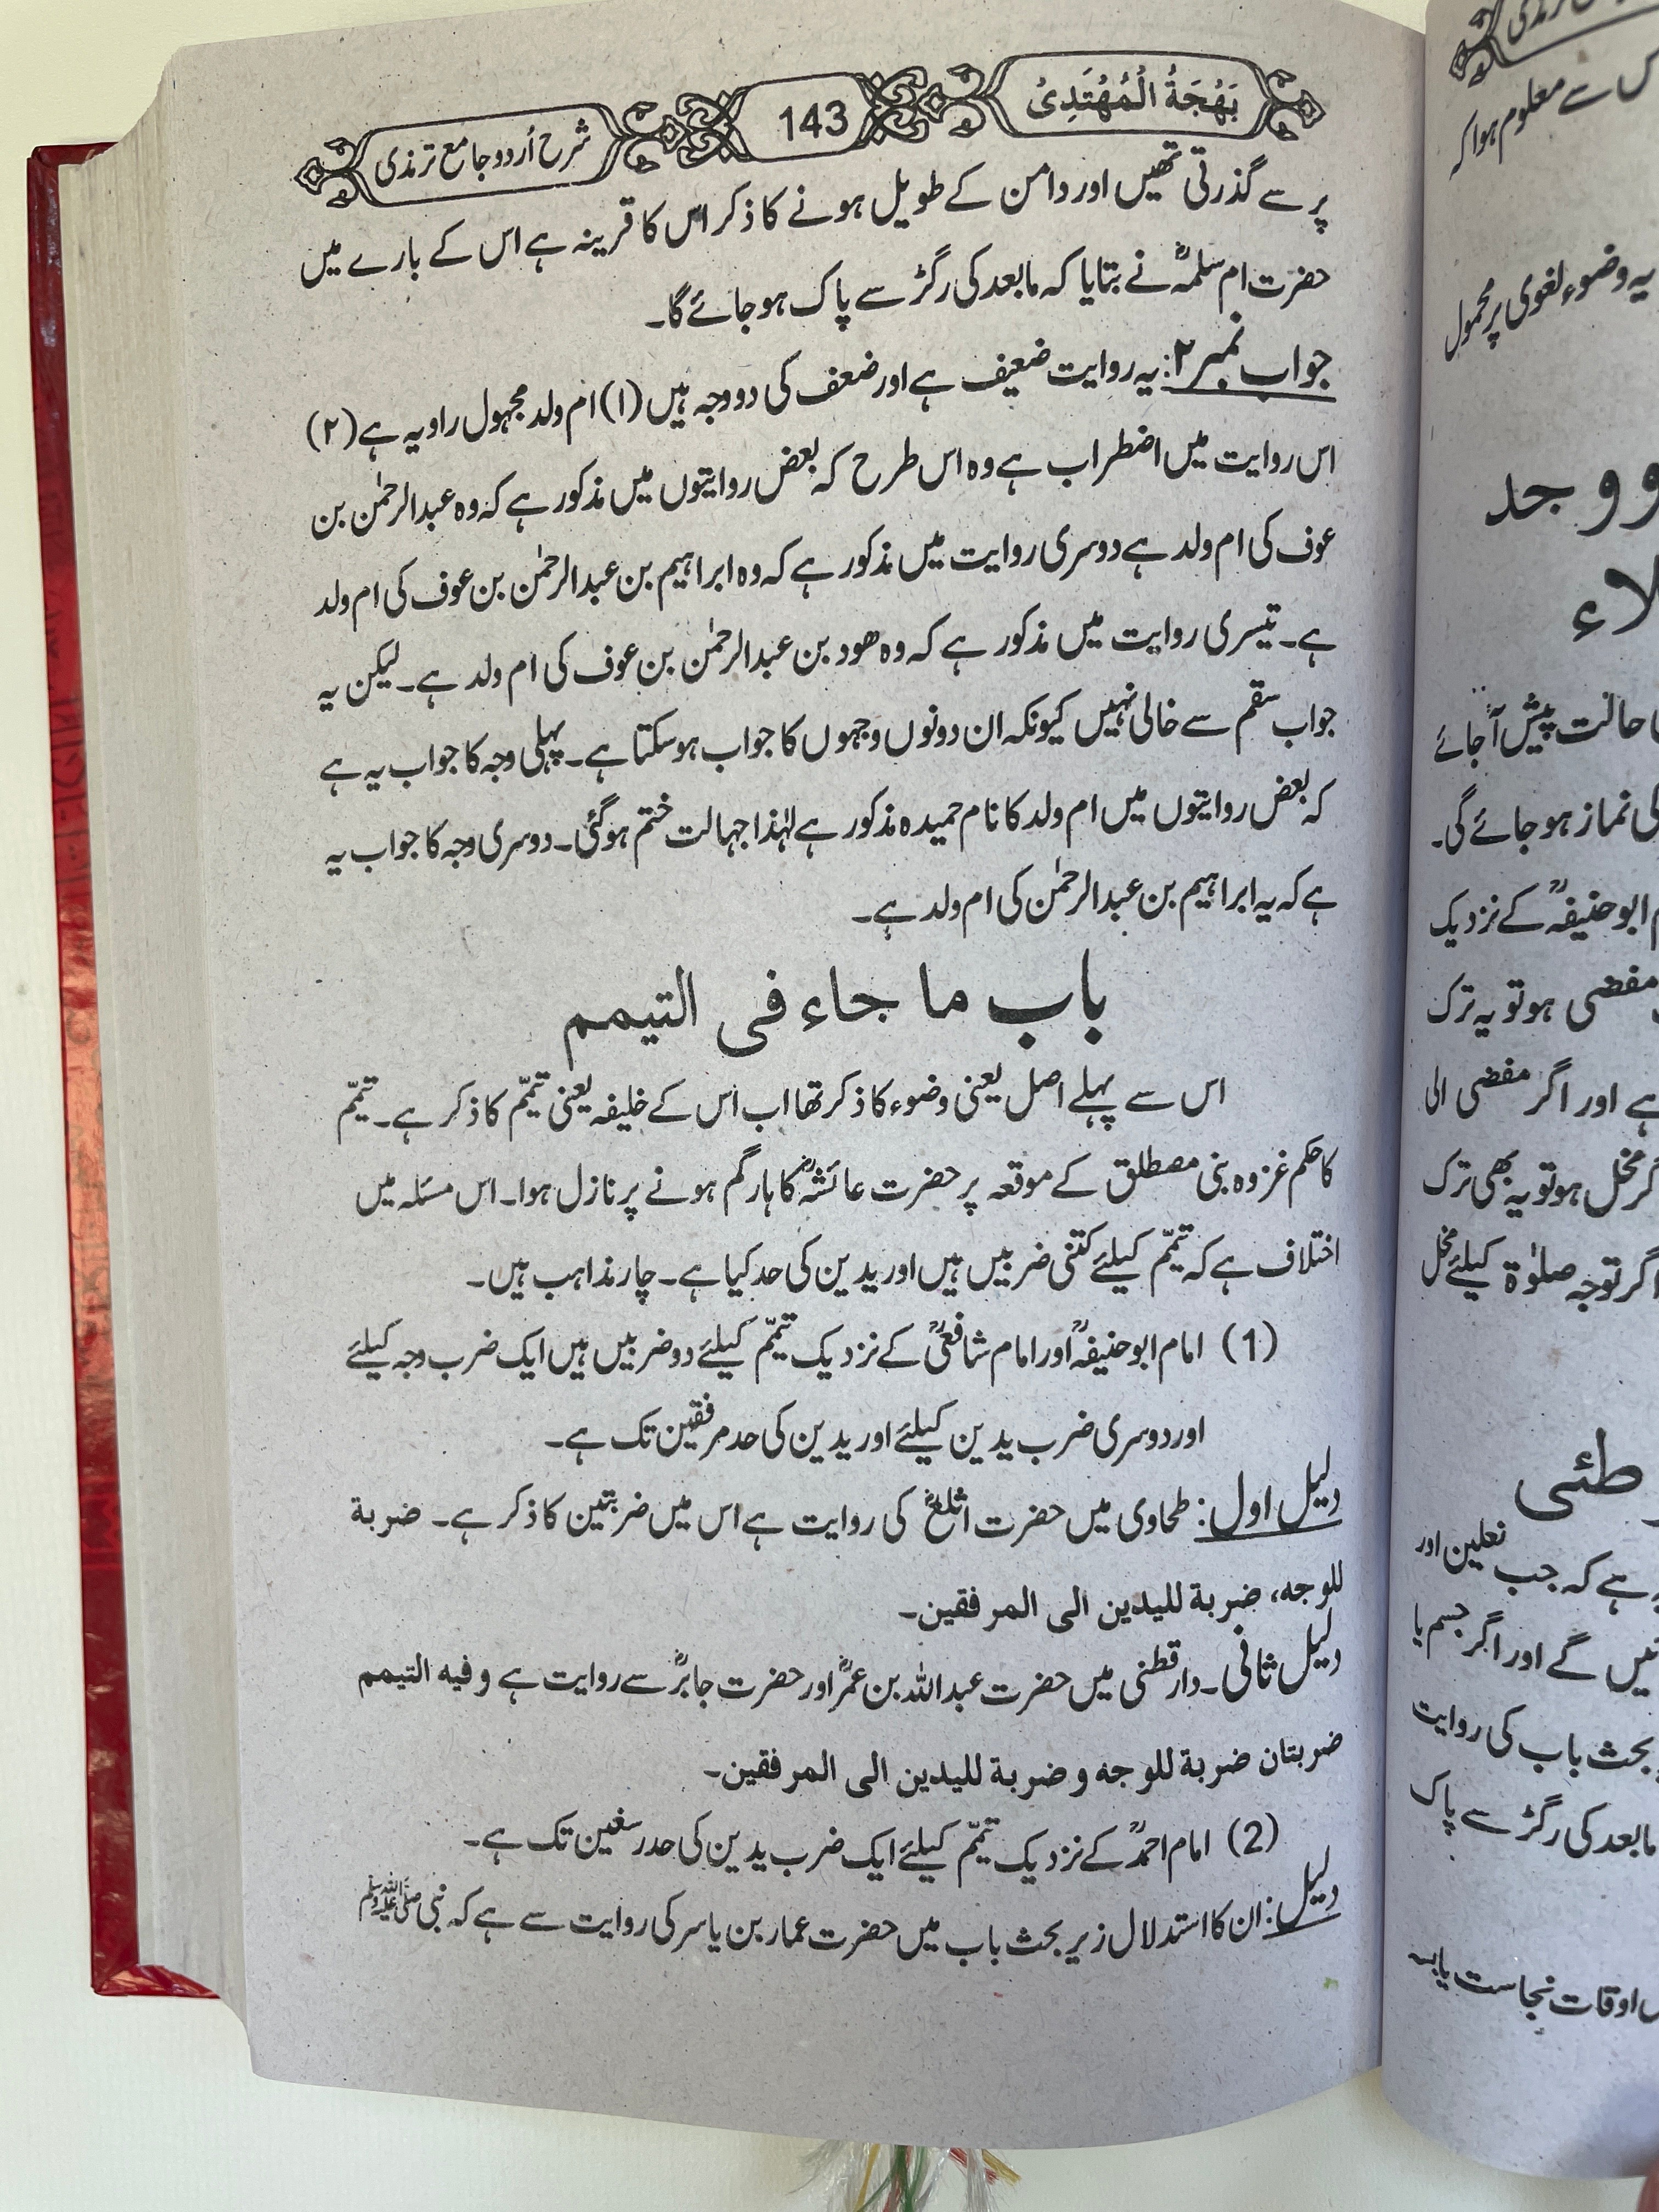 بَهْجَةُ الْمُهْتَدِیْ
143
شرح اُردو جامع ترمذی
پر سے گذرتی تھیں اور دامن کے طویل ہونے کا ذکر اس کا قرینہ ہے اس کے بارے میں
حضرت ام سلمہؓ نے بتایا کہ مابعد کی رگڑ سے پاک ہوجائے گا۔
جواب نمبر ۲: یہ روایت ضعیف ہے اور ضعف کی دو وجہ ہیں (۱) ام ولد مجہول راویہ ہے (۲)
اس روایت میں اضطراب ہے وہ اس طرح کہ بعض روایتوں میں مذکور ہے کہ وہ عبدالرحمٰن بن
عوف کی ام ولد ہے دوسری روایت میں مذکور ہے کہ وہ ابراہیم بن عبدالرحمٰن بن عوف کی ام ولد
ہے۔ تیسری روایت میں مذکور ہے کہ وہ ھود بن عبدالرحمٰن بن عوف کی ام ولد ہے۔ لیکن یہ
جواب سقم سے خالی نہیں کیونکہ ان دونوں وجہوں کا جواب ہوسکتا ہے۔ پہلی وجہ کا جواب یہ ہے
کہ بعض روایتوں میں ام ولد کا نام حمیدہ مذکور ہے لہٰذا جہالت ختم ہوگئی۔ دوسری وجہ کا جواب یہ
ہے کہ یہ ابراہیم بن عبدالرحمٰن کی ام ولد ہے۔
باب ما جاء فی التیمم
اس سے پہلے اصل یعنی وضوء کا ذکر تھا اب اس کے خلیفہ یعنی تیمّم کا ذکر ہے۔ تیمّم
کا حکم غزوہ بنی مصطلق کے موقعہ پر حضرت عائشہؓ کا ہار گم ہونے پر نازل ہوا۔ اس مسئلہ میں
اختلاف ہے کہ تیمّم کیلئے کتنی ضربیں ہیں اور یدین کی حد کیا ہے۔ چار مذاہب ہیں۔
(1) امام ابوحنیفہؒ اور امام شافعیؒ کے نزدیک تیمّم کیلئے دو ضربیں ہیں ایک ضرب وجہ کیلئے
اور دوسری ضرب یدین کیلئے اور یدین کی حد مرفقین تک ہے۔
دلیل اول: طحاوی میں حضرت اثلعؓ کی روایت ہے اس میں ضربتین کا ذکر ہے۔ ضربة
للوجه، ضربة للیدین الی المرفقین۔
دلیل ثانی۔ دارقطنی میں حضرت عبداللہ بن عمرؓ اور حضرت جابرؓ سے روایت ہے وفیه التیمم
ضربتان ضربة للوجه و ضربة للیدین الی المرفقین۔
(2) امام احمدؒ کے نزدیک تیمّم کیلئے ایک ضرب یدین کی حد رسغین تک ہے۔
دلیل: ان کا استدلال زیر بحث باب میں حضرت عمار بن یاسر کی روایت سے ہے کہ نبی ﷺ
س سے معلوم ہوا کہ
یہ وضوء لغوی پر محمول
و وجد
لاء
حالت پیش آجائے
کی نماز ہوجائے گی۔
ابوحنیفہؒ کے نزدیک
مفضی ہو تو یہ ترک
ہے اور اگر مفضی الی
گر مخل ہو تو یہ بھی ترک
اگر توجہ صلوٰة کیلئے مخل
طئی
ہے کہ جب نعلین اور
ئیں گے اور اگر جسم یا
بحث باب کی روایت
مابعد کی رگڑ سے پاک
اوقات نجاست یابسہ